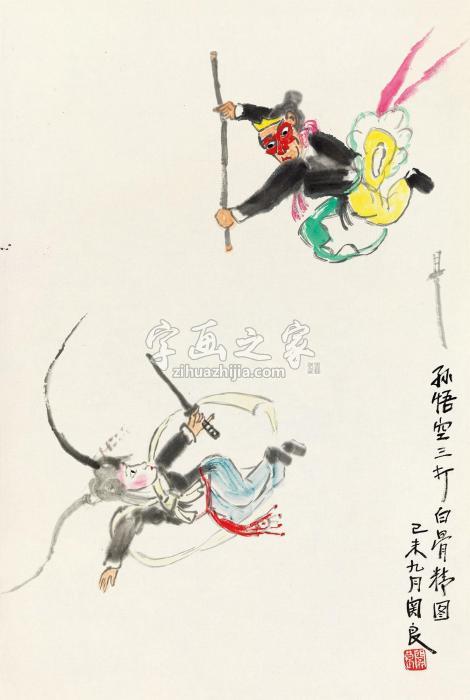 孙悟空三打白骨精图
己未九月关良
字画之家
zihuazhijia.com